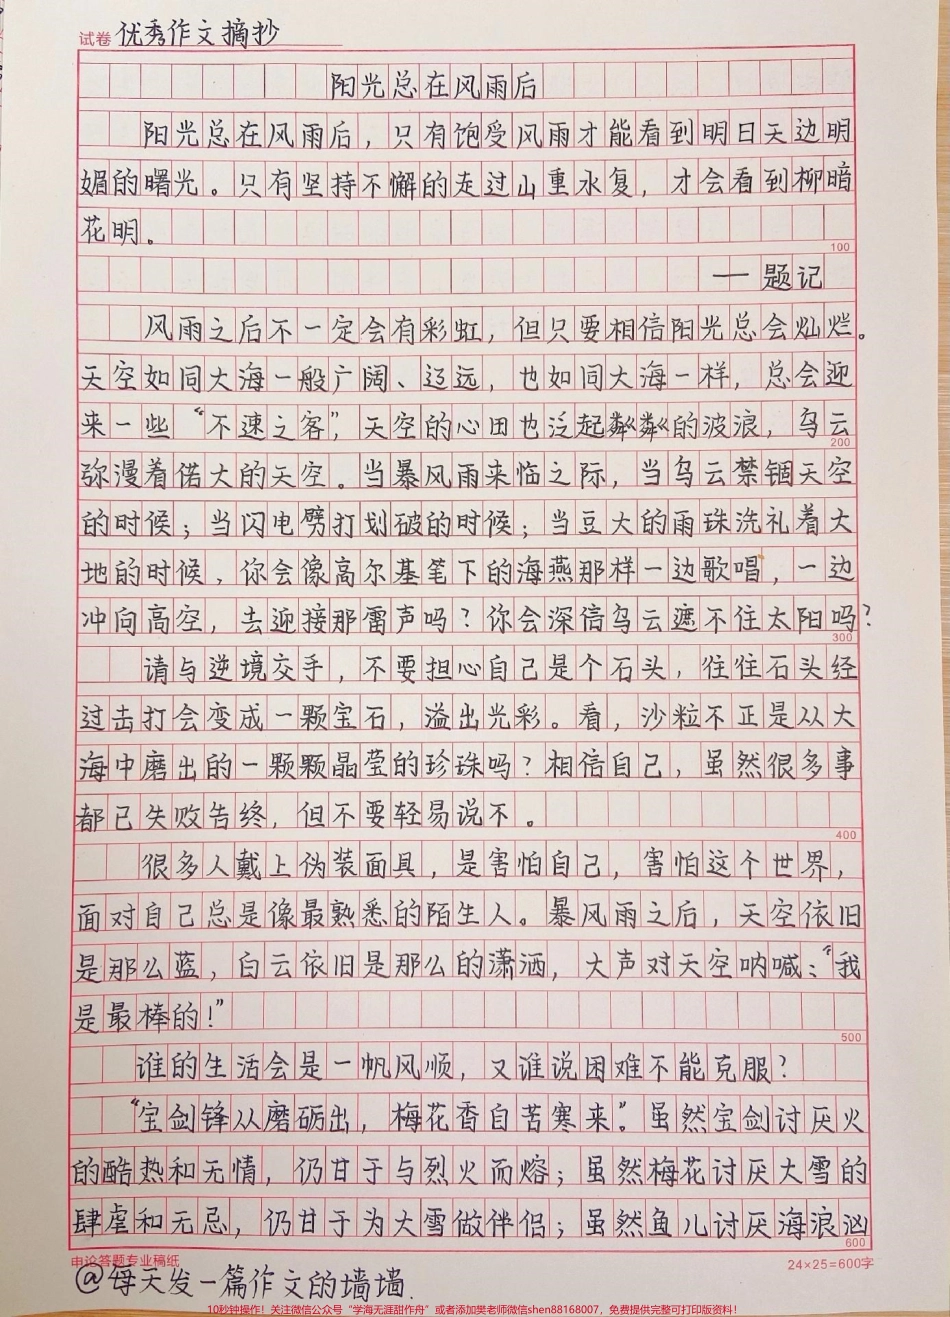 试卷 优秀作文摘抄
阳光总在风雨后
阳光总在风雨后，只有饱受风雨才能看到明日天边明
媚的曙光。只有坚持不懈的走过山重水复，才会看到柳暗
花明。
100
——题记
风雨之后不一定会有彩虹，但只要相信阳光总会灿烂。
天空如同大海一般广阔、辽远，也如同大海一样，总会迎
来一些“不速之客”，天空的心田也泛起粼粼的波浪，乌云
200
弥漫着偌大的天空。当暴风雨来临之际，当乌云禁锢天空
的时候；当闪电劈打划破的时候；当豆大的雨珠洗礼着大
地的时候，你会像高尔基笔下的海燕那样一边歌唱，一边
冲向高空，去迎接那雷声吗？你会深信乌云遮不住太阳吗？
300
请与逆境交手，不要担心自己是个石头，往往石头经
过击打会变成一颗宝石，溢出光彩。看，沙粒不正是从大
海中磨出的一颗颗晶莹的珍珠吗？相信自己，虽然很多事
都已失败告终，但不要轻易说不。
400
很多人戴上伪装面具，是害怕自己，害怕这个世界，
面对自己总是像最熟悉的陌生人。暴风雨之后，天空依旧
是那么蓝，白云依旧是那么的潇洒，大声对天空呐喊：“我
是最棒的！”
500
谁的生活会是一帆风顺，又谁说困难不能克服？
“宝剑锋从磨砺出，梅花香自苦寒来”。虽然宝剑讨厌火
的酷热和无情，仍甘于与烈火而熔；虽然梅花讨厌大雪的
肆虐和无忌，仍甘于为大雪做伴侣；虽然鱼儿讨厌海浪汹
600
申论答题专业稿纸 24×25=600字
@每天发一篇作文的墙墙.
10秒钟操作！关注微信公众号“学海无涯甜作舟”或者添加樊老师微信shen88168007，免费提供完整可打印版资料！